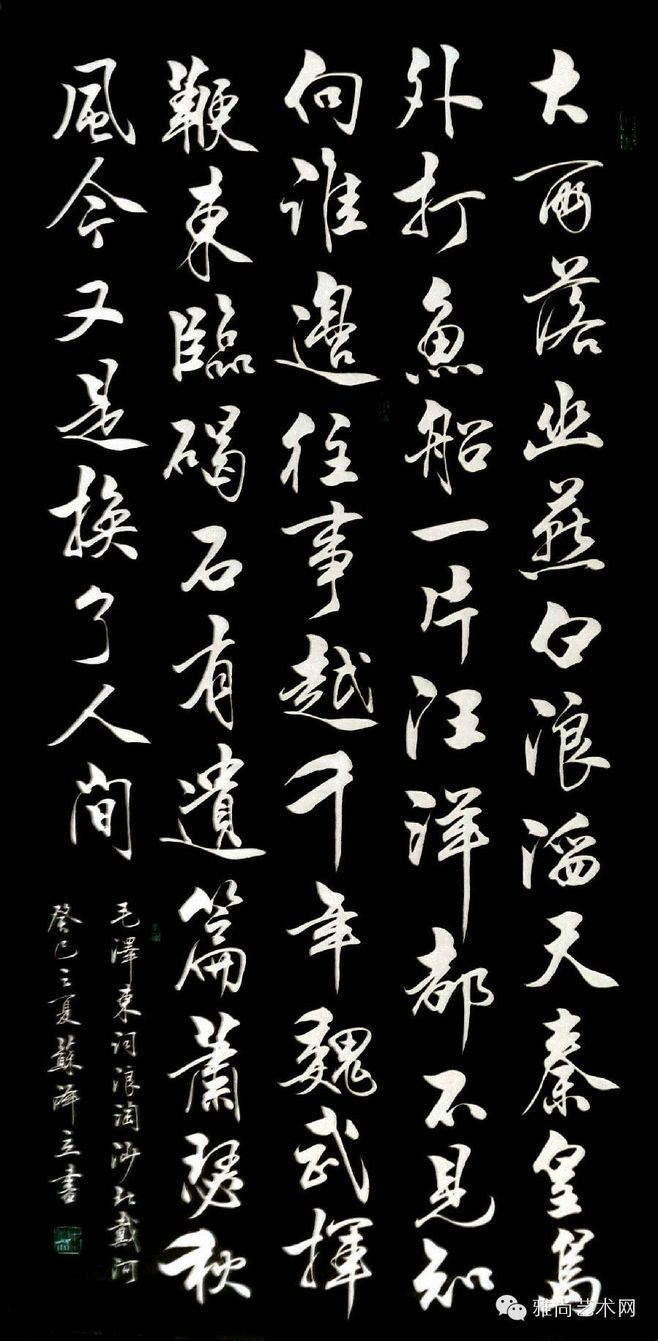 大雨落幽燕白浪滔天秦皇島
外打魚船一片汪洋都不見知
向誰邊往事越千年魏武揮
鞭東臨碣石有遺篇蕭瑟秋
風今又是換了人間
毛澤東詞浪淘沙北戴河
癸巳之夏蘇澤立書
雅尚艺术网